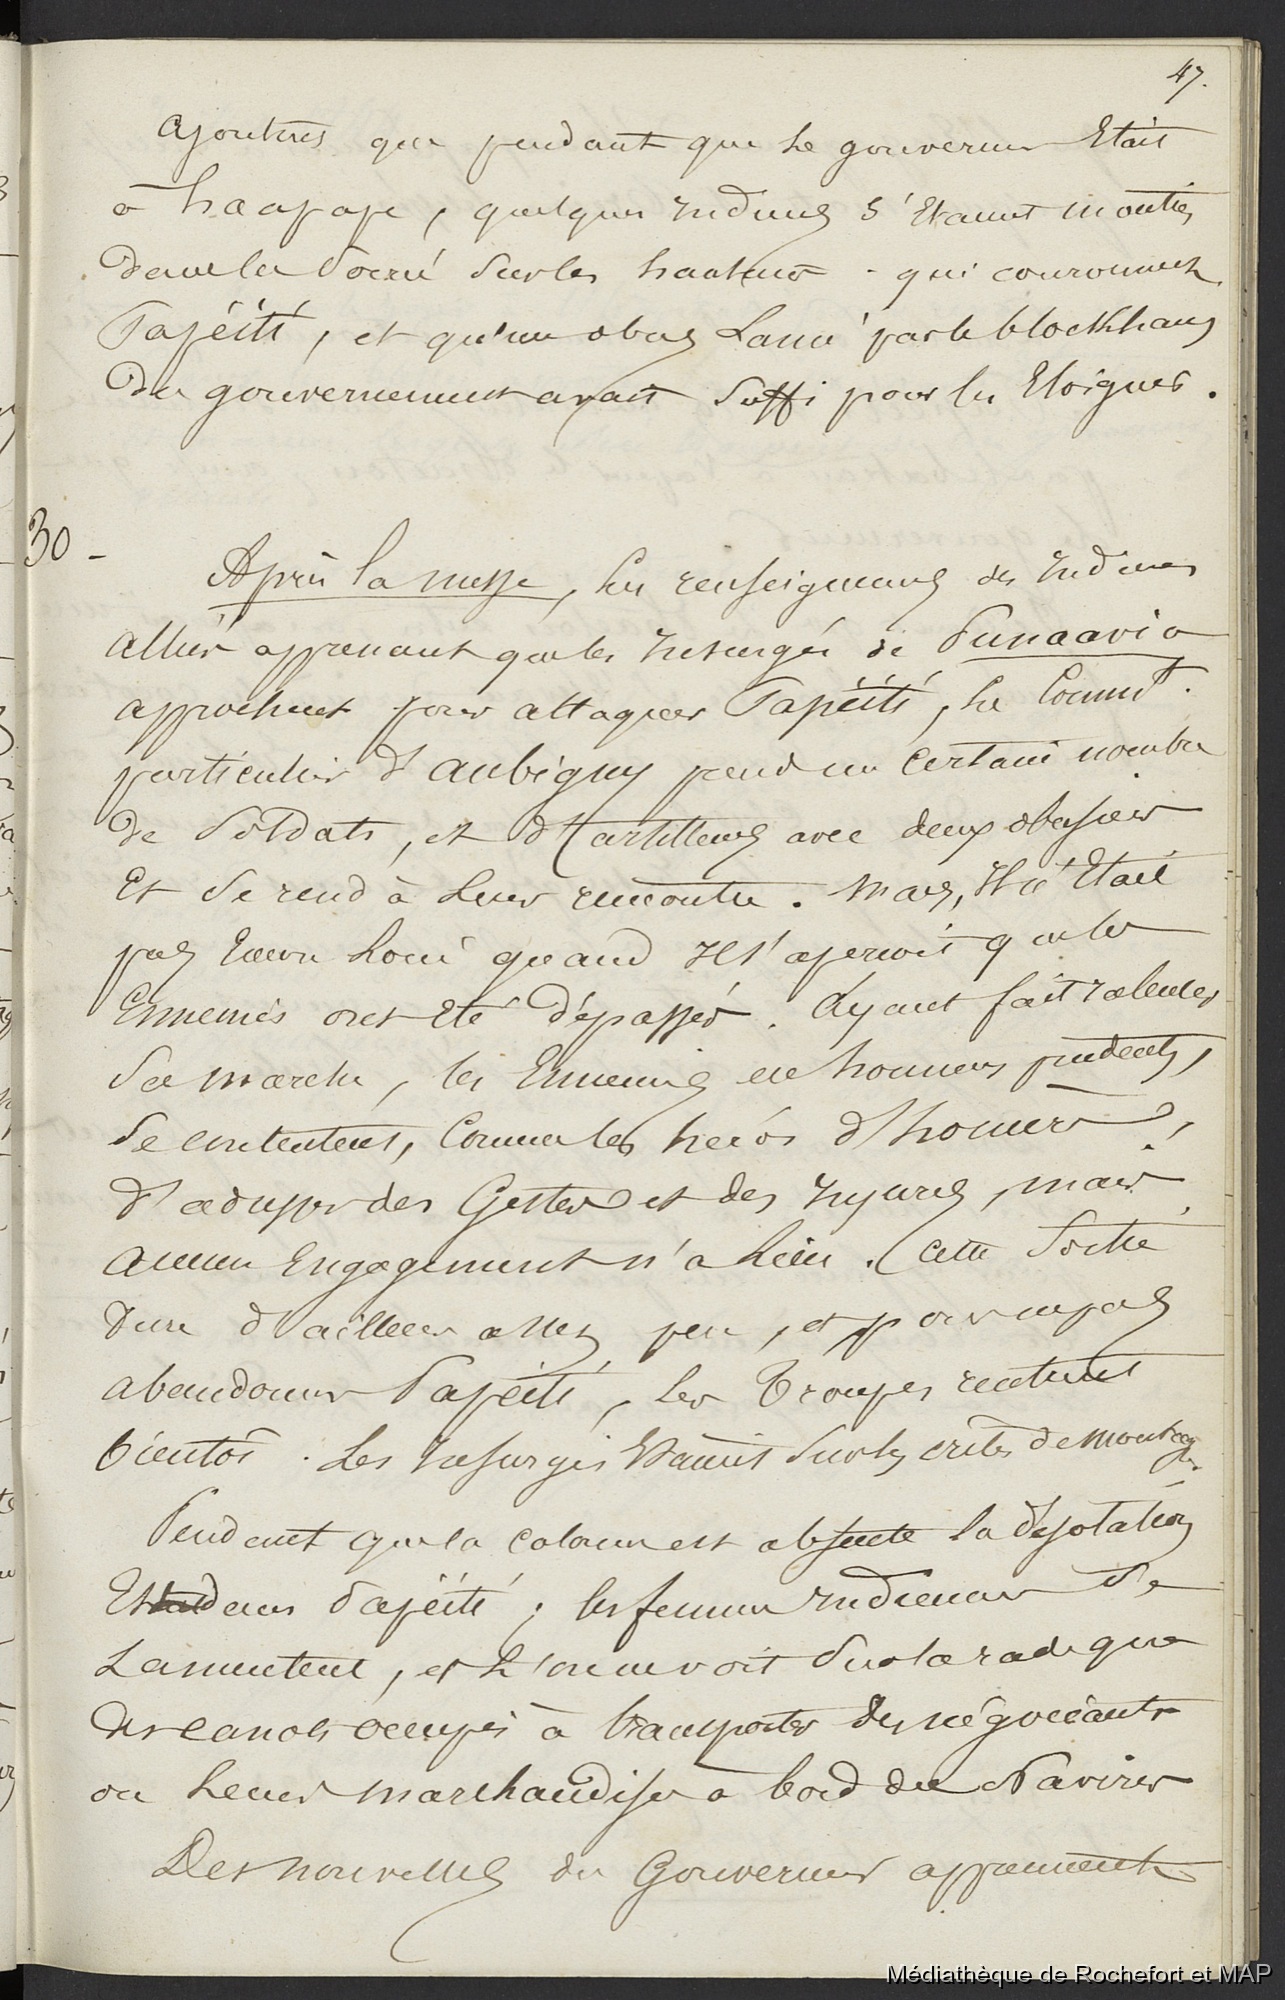 47.
Ajoutons que pendant que le gouverneur Etait
à haapape, quelques Indiens s'Etaient montrés
dans la soirée sur les hauteurs qui couronnent
Papéiti, et qu'un obus Lancé par le blockhaus
du gouvernement avait suffi pour les Eloigner.
30 -
Après la messe, les renseignements des Indiens
alliés apprenant que les Insurgés de Punaavia
approchent pour attaquer Papéiti, le Commdt.
particulier d'aubigny prend un certain nombre
de soldats, et d'artilleurs avec deux obusiers
Et se rend à leur rencontre. Mais, Il n'Etait
pas Encore loin quand Il s'aperçoit que les
Ennemis ont Eté dépassés. Ayant fait ralentir
sa marche, les Ennemis en hommes prudents,
se contentent, Comme les héros d'homère,
d'adresser des Gestes et des Injures, mais
aucun Engagement n'a lieu. Cette Sortie
dure d'ailleurs assez peu, et pour ne pas
abandonner Papéiti, les troupes rentrent
bientôt. Les Insurgés Etaient sur les crêtes de montagnes.
Pendant que la colonne est absente la désolation
Est dans Papéiti; les femmes Indiennes se
Lamentent, et l'on ne voit sur la rade que
des canots occupés à transporter des négociants
ou leurs marchandises à bord des Navires
Des nouvelles du Gouverneur apprennent
Médiathèque de Rochefort et MAP